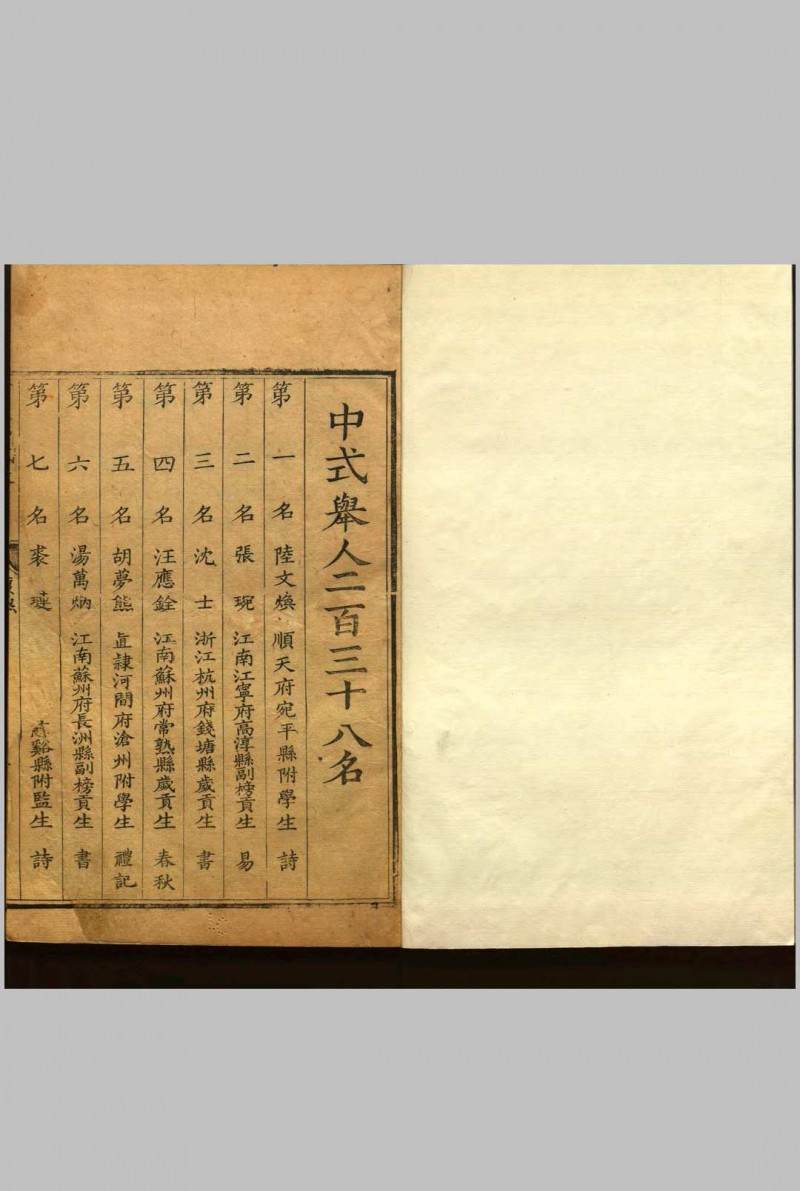 中式舉人二百三十八名
第一名陸文煥順天府宛平縣附學生詩
第二名張琬江南江寧府高淳縣副榜貢生易
第三名沈士浙江杭州府錢塘縣歲貢生書
第四名汪應銓江南蘇州府常熟縣歲貢生春秋
第五名胡夢熊直隷河間府滄州附學生禮記
第六名湯萬炳江南蘇州府長洲縣副榜貢生書
第七名裘璉慈谿縣附監生詩